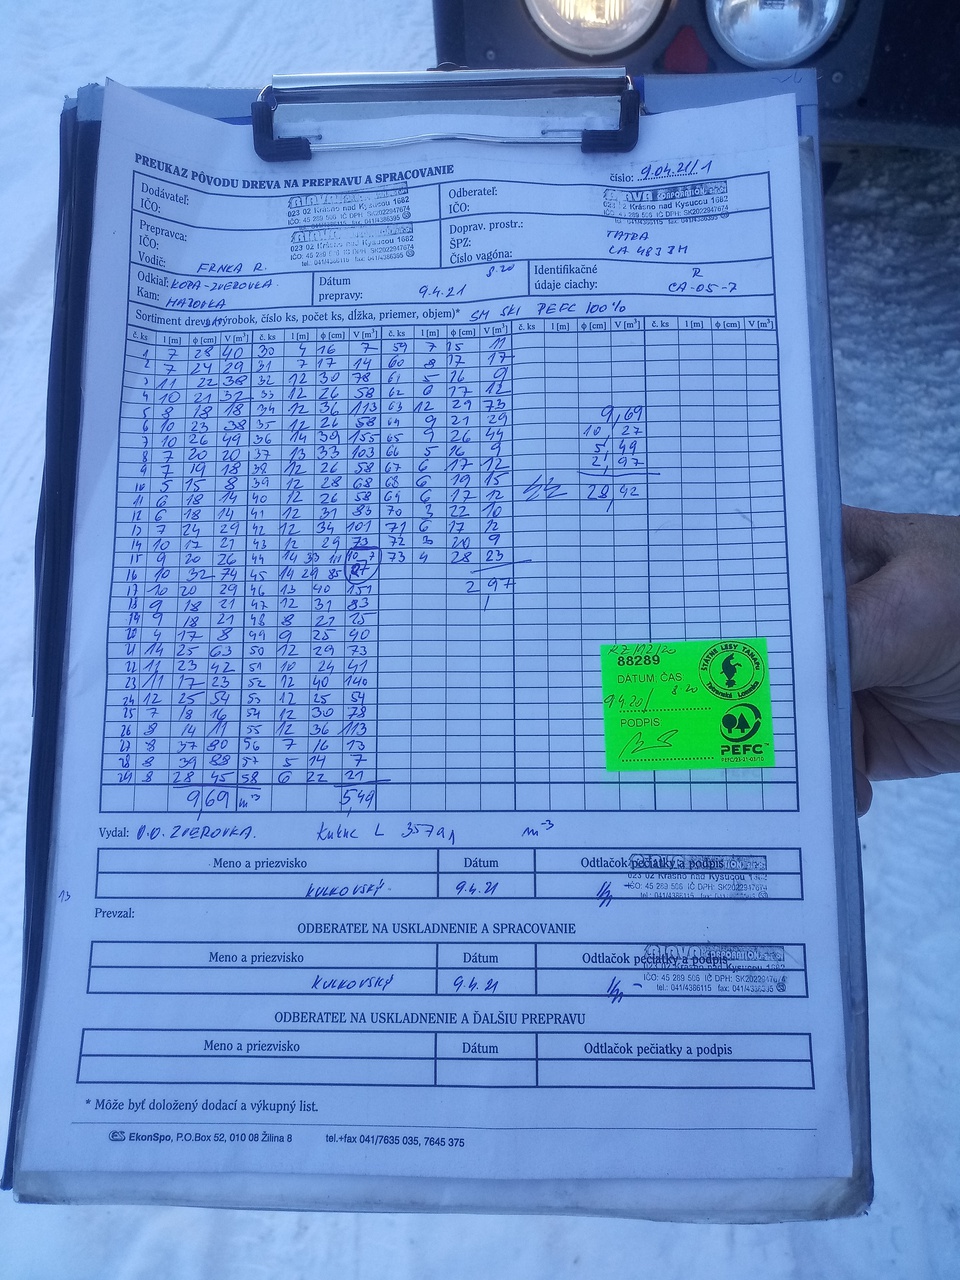 PREUKAZ PÔVODU DREVA NA PREPRAVU A SPRACOVANIE
číslo: 9.04.21/1
Dodávateľ:
IČO:
023 02 Krásno nad Kysucou 1682
Odberateľ:
IČO:
023 02 Krásno nad Kysucou 1682
Prepravca:
IČO:
Vodič: FRNKA R.
023 02 Krásno nad Kysucou 1682
Doprav. prostr.: TATRA
ŠPZ: CA 483JH
Číslo vagóna:
Odkiaľ: KOPA-ZVEROVKA
Kam: HAJOVKA
Dátum
prepravy: 9.4.21 8.20
Identifikačné
údaje ciachy: R
CA-05-7
Sortiment dreva (výrobok, číslo ks, počet ks, dĺžka, priemer, objem)* SM SKI PEFC 100%
č. ks l [m] ϕ [cm] V [m³] č. ks l [m] ϕ [cm] V [m³] č. ks l [m] ϕ [cm] V [m³] č. ks l [m] ϕ [cm] V [m³] č. ks l [m] ϕ [cm] V [m³]
1 7 28 40 30 4 16 7 59 7 15 11
2 7 24 29 31 7 17 14 60 8 17 17
3 11 22 38 32 12 30 78 61 5 16 9
4 10 21 32 33 12 26 58 62 6 17 12
5 8 18 18 34 12 36 113 63 12 29 73 9,69
6 10 23 38 35 12 26 58 64 9 21 29 10,27
7 10 26 49 36 14 39 155 65 9 26 44 5,49
8 7 20 20 37 13 33 103 66 5 16 9 2,97
9 7 19 18 38 12 26 58 67 6 17 12
10 5 15 8 39 12 28 68 68 6 19 15 28,42
11 6 18 14 40 12 26 58 69 6 17 12
12 6 18 14 41 12 31 83 70 3 22 10
13 7 24 29 42 12 34 101 71 6 17 12
14 10 17 21 43 12 29 73 72 3 20 9
15 9 20 26 44 14 33 111 73 4 28 23
16 10 32 74 45 14 29 85
17 10 20 29 46 13 40 151 2,97
18 9 18 21 47 12 31 83
19 9 18 21 48 8 21 25
20 4 17 8 49 9 25 40
21 14 25 63 50 12 29 73
22 11 23 42 51 10 24 41
23 11 17 23 52 12 40 140
24 12 25 54 53 12 25 54
25 7 18 16 54 12 30 78
26 8 14 11 55 12 36 113
27 8 37 80 56 7 16 13
28 8 39 88 57 5 14 7
29 8 28 45 58 6 22 21
9,69 m³ 5,49
88289
DÁTUM: ČAS
8 20
PODPIS
ŠTÁTNE LESY TANAPU
Tatranská Lomnica
PEFC
Vydal: O.O. ZVEROVKA.
Meno a priezvisko Dátum Odtlačok pečiatky a podpis
KULKOVSKÝ 9.4.21
023 02 Krásno nad Kysucou
Prevzal:
ODBERATEĽ NA USKLADNENIE A SPRACOVANIE
Meno a priezvisko Dátum Odtlačok pečiatky a podpis
KULKOVSKÝ 9.4.21
023 02 Krásno nad Kysucou 1682
tel.: 041/4386115 fax: 041/4386395
ODBERATEĽ NA USKLADNENIE A ĎALŠIU PREPRAVU
Meno a priezvisko Dátum Odtlačok pečiatky a podpis
* Môže byť doložený dodací a výkupný list.
EkonSpo, P.O.Box 52, 010 08 Žilina 8 tel.+fax 041/7635 035, 7645 375